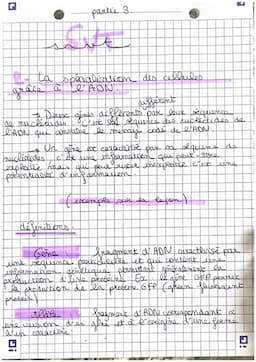 partie 3.
SVT
La spécialisation des cellules
grâce à l'ADN.
suffisent
→ Deux gènes différents par leur séquence
de nucléotides, c'est la séquence des nucléotides de
l'ADN qui constitue le message codé de l'ADN
→ Un gène est caractérisé par sa séquence de
nucléotides, c'est une information qui peut-être
exprimée mais qui peut rester inexprimée c'est une
potentialité d'information.
(exemple sur la leçon)
définitions:
Gène : fragment d'ADN caractérisé par
une séquence particulière et qui contient une
information génétique permettant généralement la
production d'une protéine. Ex: le gène GFP permet
la production de la protéine GFP (green fluorescent
protein)
Allèle : fragment d'ADN correspondant à
une version d'un gène et à l'origine d'une forme
d'un caractère.